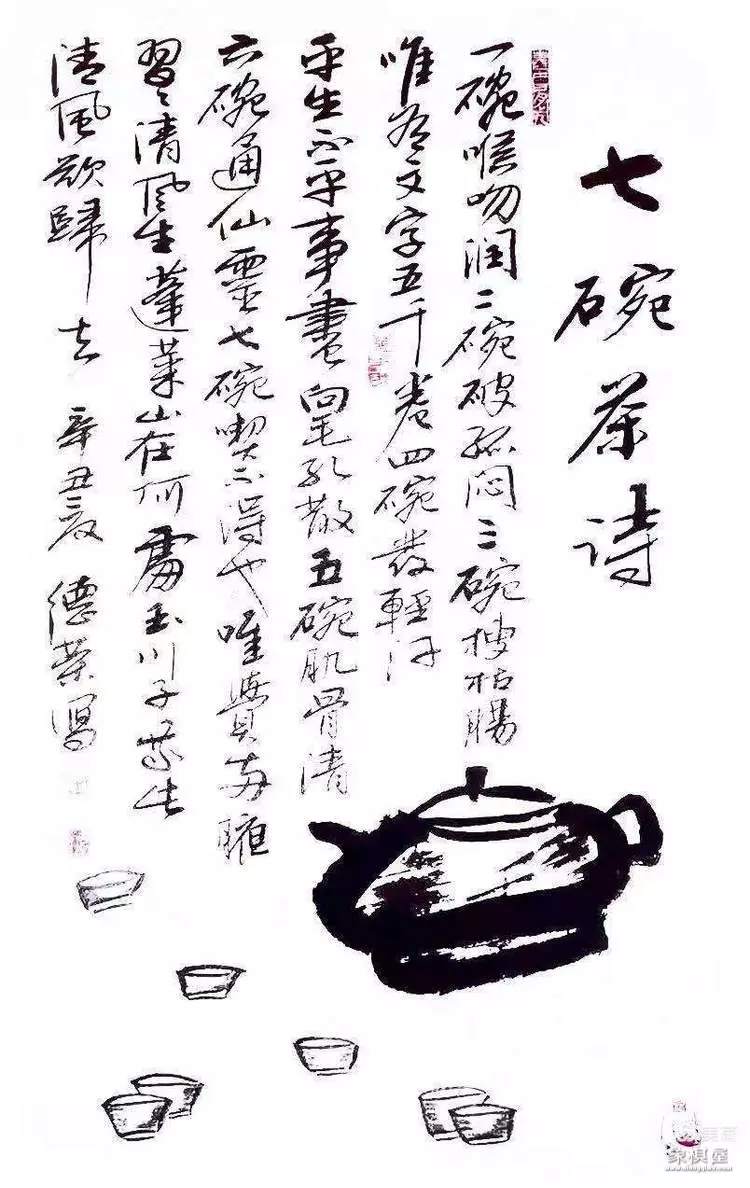 七碗茶诗
一碗喉吻润二碗破孤闷三碗搜枯肠
唯有文字五千卷四碗發輕汗
平生不平事盡向毛孔散五碗肌骨清
六碗通仙靈七碗喫不得也唯覺两腋
習〻清風生蓬萊山在何處玉川子乘此
清風欲歸去 辛丑夏 德榮寫
象棋屋